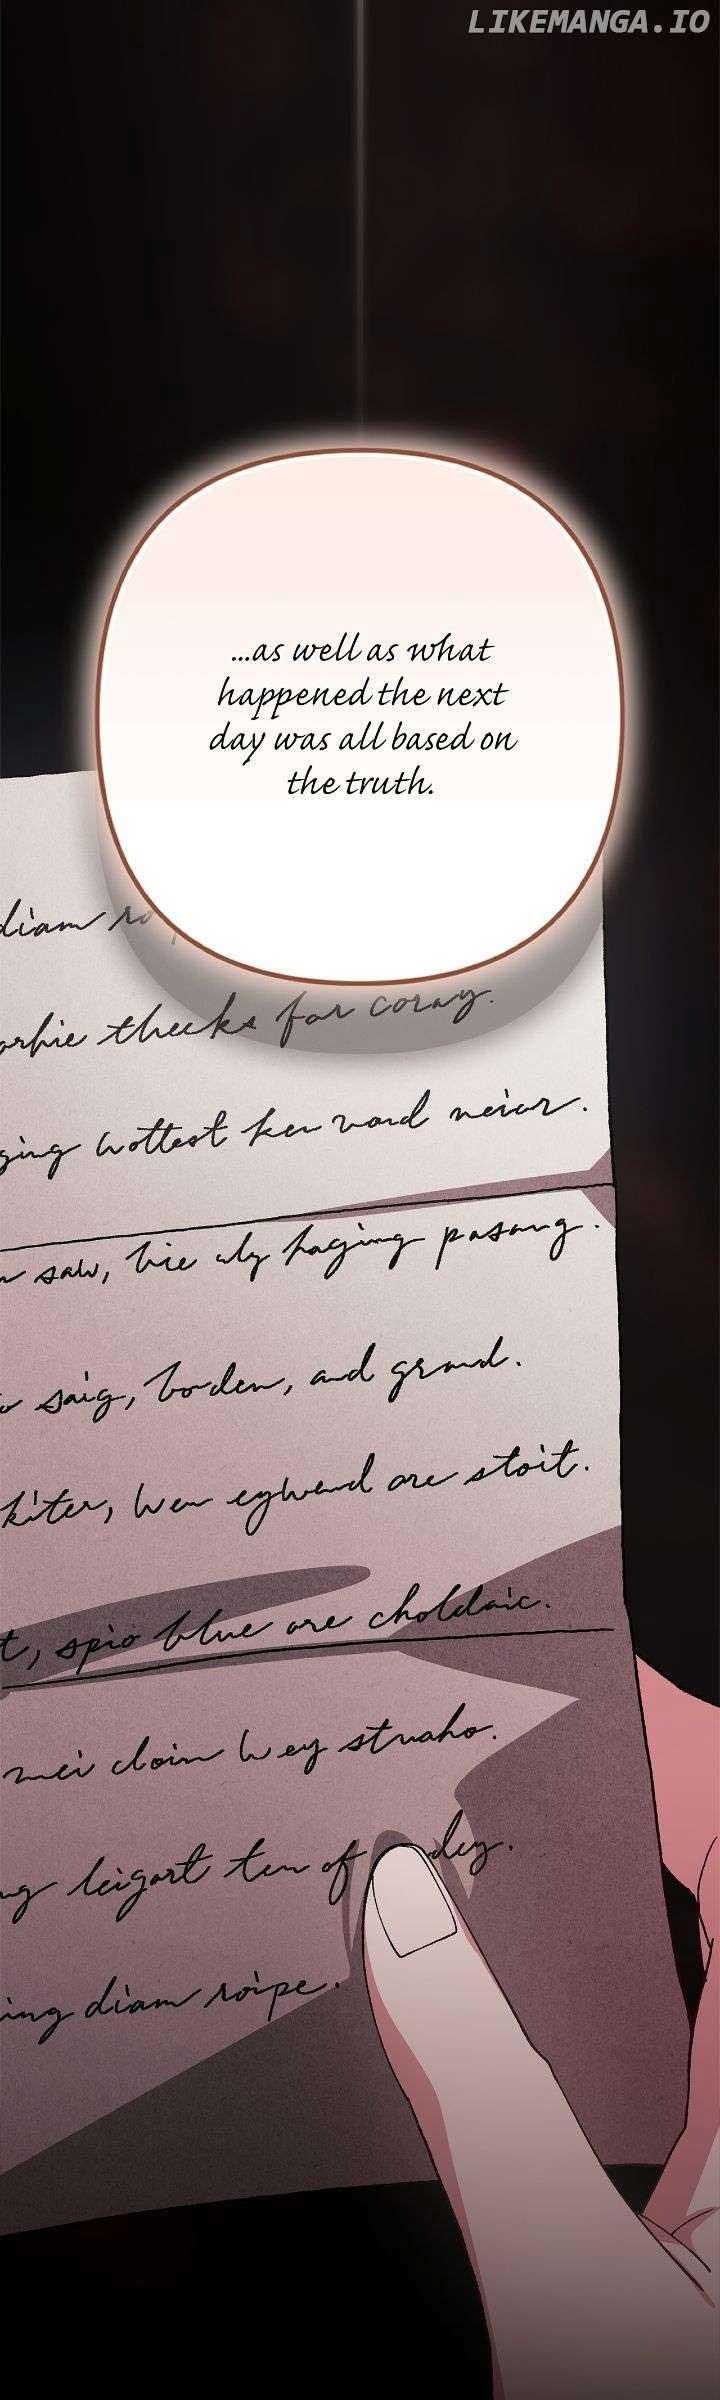 LIKEMANGA.IO
...as well as what
happened the next
day was all based on
the truth.
diam
thecks for coray.
ging wottest ken vard neior.
saw, bie uly haging pasang.
saig, boden, and grand.
kiter, wen eywend are stoit.
t, spio blue are choldaic.
mei cloin wey struaho.
ng leigart ten of dey.
ing diam roipe.